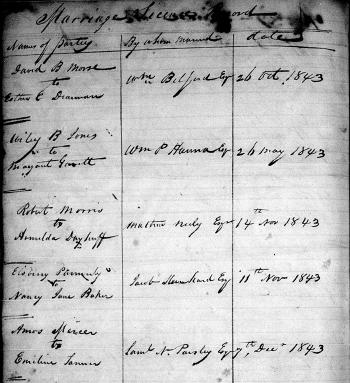 Marriage License Record
Names of parties By whom married date
David B Morse
to Wm Bilford Esq 26 Oct. 1843
Esther E
Wiley B Jones
to Wm P Hanna Esq 26 May 1843
Margaret
Robert Morris
to Mathew Neely Esqr 14th Nov 1843
Armilda
to Jacob Esq 11th Nov 1843
Nancy Jane Baker
Amos Mercer
to Saml N. Pursley Esq 7th Decr 1843
Emiline Tanner